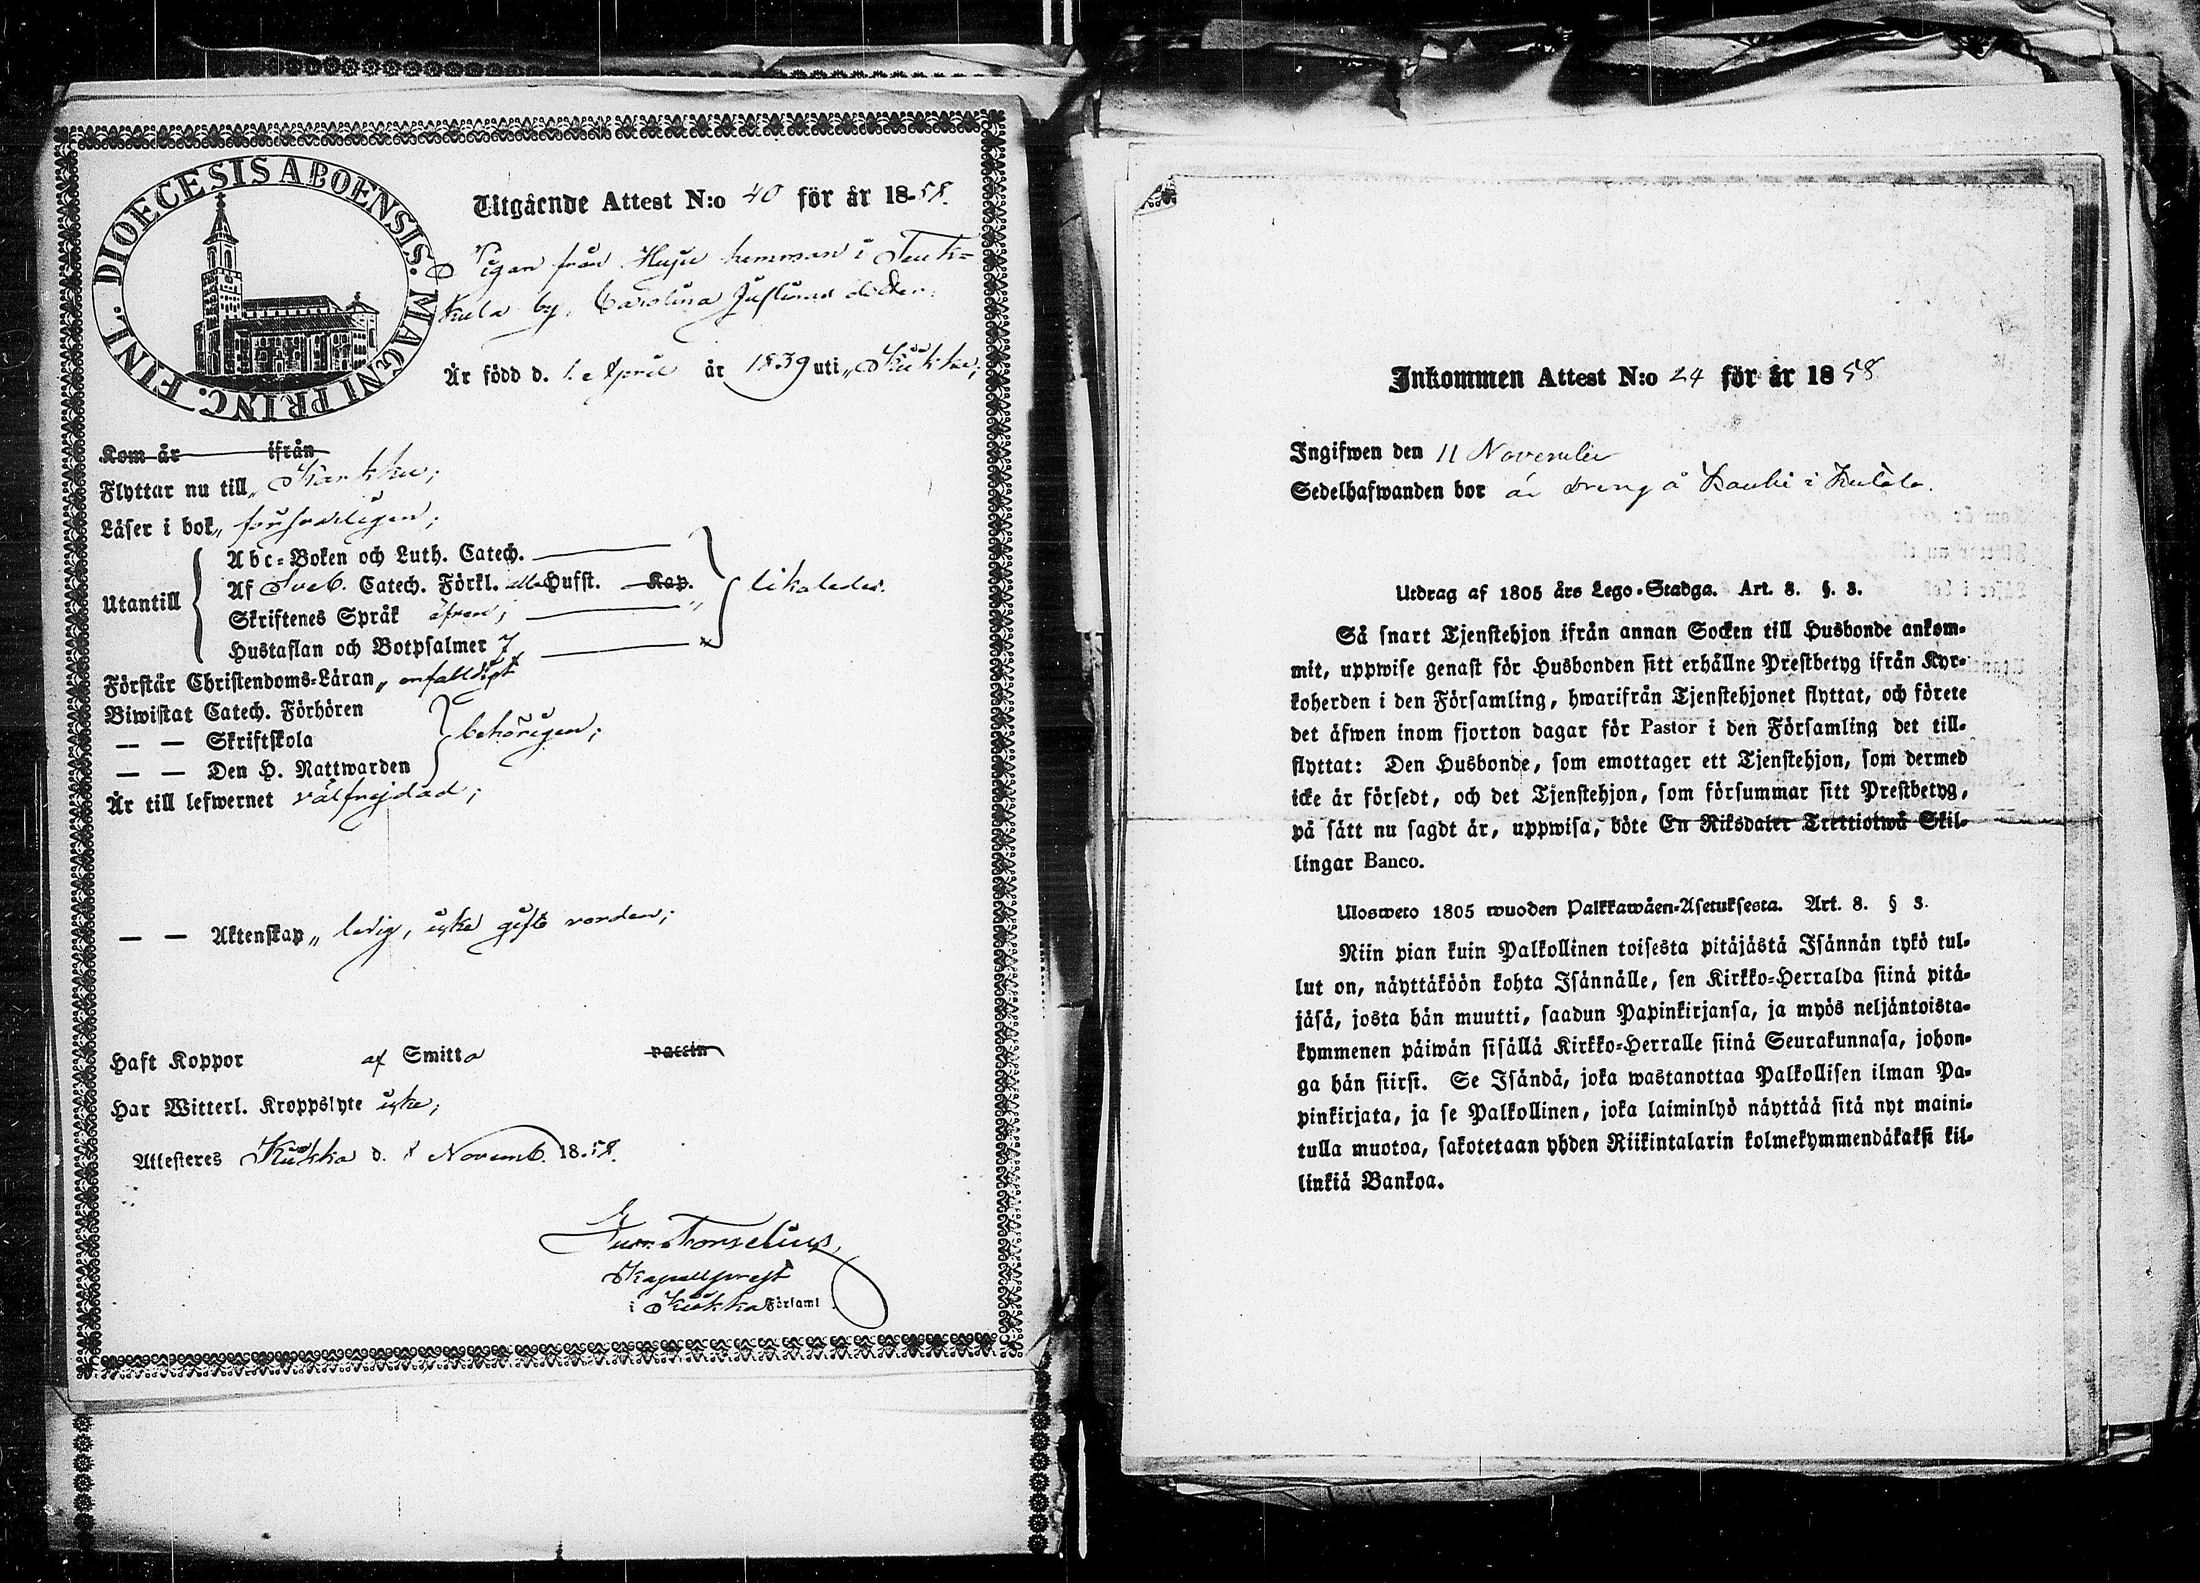 DIOECESIS ABOENSIS. MAGNI PRINC. FINL.
Utgående Attest N:o 40 för år 1858.
Pigan från Huju hemman i Teuk=
kula by, Carolina Justina dotter;
Är född d. 1. April år 1839 uti „Kiikka;
Kom år ifrån
Flyttar nu till „Karkku;
Läser i bok „försvarligen;
Utantill
Abc-Boken och Luth. Catech.
Af Sveb. Catech. Förkl. alla Hufst. Kap.
Skriftenes Språk äfven; „
Hustaflan och Botpsalmer 7
likaledes.
Förstår Christendoms-Läran „enfalldigt
Biwistat Catech. Förhören
— — Skriftskola
— — Den H. Nattwarden
behörigen;
Är till lefwernet välfrejdad;
— — Äktenskap „ledig, icke gift vorden;
Haft Koppor af Smitta vaccin
Har Witterl. Kroppslyte icke;
Attesteres Kiikka d. 8 Novemb. 1858.
Forselius,
Kapellprest
i Kiikka Församl.
Inkommen Attest N:o 24 för år 1858
Ingifwen den 11 November
Sedelhafwanden bor är dreng å i
Utdrag af 1805 års Lego-Stadga. Art. 8. §. 3.
Så snart Tjenstehjon ifrån annan Socken till Husbonde ankom-
mit, uppwise genast för Husbonden sitt erhållne Prestbetyg ifrån Kyr-
koherden i den Församling, hwarifrån Tjenstehjonet flyttat, och förete
det äfwen inom fjorton dagar för Pastor i den Församling det till-
flyttat: Den Husbonde, som emottager ett Tjenstehjon, som dermed
icke är försedt, och det Tjenstehjon, som försummar sitt Prestbetyg,
på sätt nu sagdt är, uppwisa, böte En Riksdaler Trettiotwå Skil-
lingar Banco.
Ulosweto 1805 wuoden Palkkawäen-Asetuksesta. Art. 8. § 3.
Niin pian kuin Palkollinen toisesta pitäjästä Isännän tykö tul-
lut on, näyttäköön kohta Isännälle, sen Kirkko-Herralda siinä pitä-
jäsä, josta hän muutti, saadun Papinkirjansa, ja myös neljäntoista-
kymmenen päiwän sisällä Kirkko-Herralle siinä Seurakunnasa, johon-
ga hän siirsi. Se Isändä, joka wastanottaa Palkollisen ilman Pa-
pinkirjata, ja se Palkollinen, joka laiminlyö näyttää sitä nyt maini-
tulla muotoa, sakotetaan yhden Riikintalarin kolmekymmendäkaksi kil-
linkiä Bankoa.